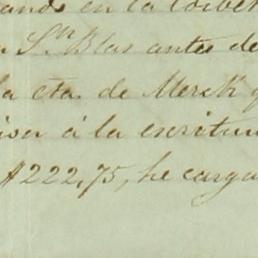 ando en la
Sn. Blas antes de
la cta. de Merck
à la escritur
$222,75, he carga